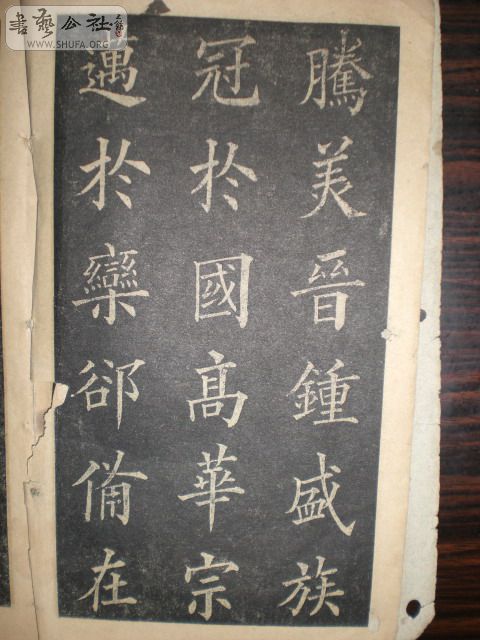 書藝公社
WWW.SHUFA.ORG
騰美晉鍾盛族
冠於國高華宗
邁於欒郤備在